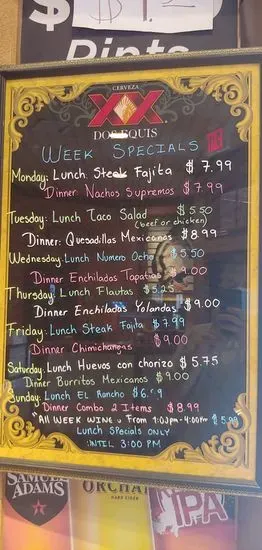 $
Pints
CERVEZA
XX
DOS EQUIS
WEEK SPECIALS
Monday: Lunch Steak Fajita $ 7.99
Dinner: Nachos Supremos $ 7.99
Tuesday: Lunch Taco Salad $ 5.50
(beef or chicken)
Dinner: Quesadillas Mexicanas $8.99
Wednesday: Lunch Numero Ocho $5.50
Dinner Enchiladas Tapatias $9.00
Thursday: Lunch Flautas $5.25
Dinner Enchiladas Yolandas $9.00
Friday: Lunch Steak Fajita $7.99
Dinner Chimichangas $9.00
Saturday: Lunch Huevos con chorizo $ 5.75
Dinner Burritos Mexicanos $9.00
Sunday: Lunch EL Rancho
Dinner Combo 2 Items $ 8.99
"All WEEK From 1:00pm - 4:00pm $ 5.99
Lunch Specials ONLY
UNTIL 3:00 PM
SAMUEL
ADAMS
ORCHARD
HARD CIDER
IPA